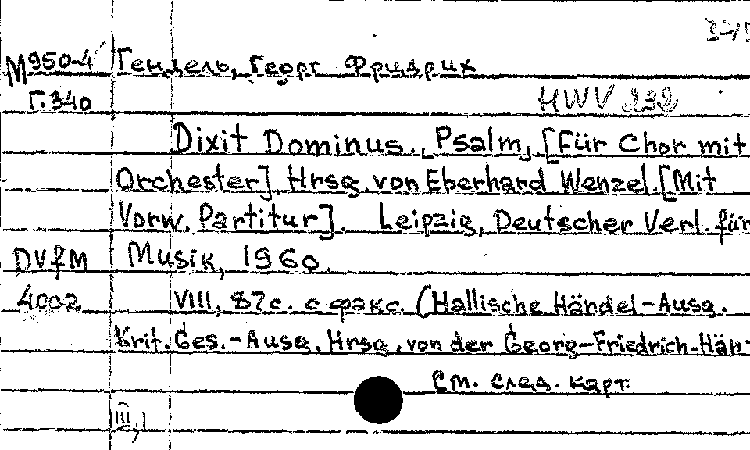 М950-4 Гендель, Георг Фридрих
Г.340 HWV 232
Dixit Dominus. Psalm, [Für Chor mit
Orchester]. Hrsg. von Eberhard Wenzel. [Mit
Vorw. Partitur]. Leipzig, Deutscher Verl. für
DVfM Musik, 1960.
4002 VIII, 87 с. с факс. (Hallische Händel-Ausg.
Krit. Ges.-Ausg. Hrsg. von der Georg-Friedrich-Hän-
См. след. карт.
III, 1